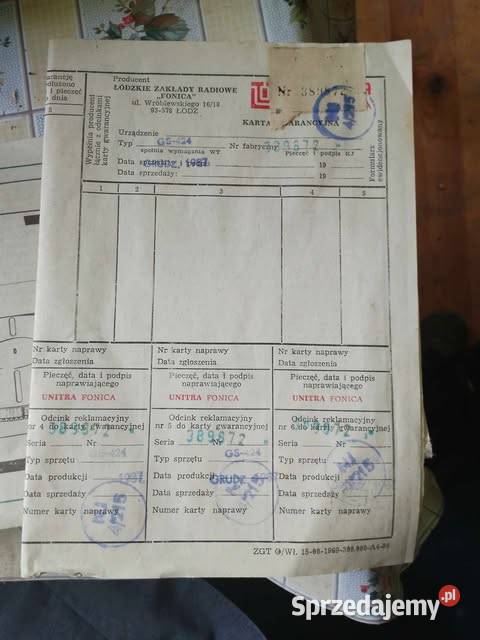 Producent
ŁÓDZKIE ZAKŁADY RADIOWE
„FONICA"
ul. Wróblewskiego 16/18
93-578 ŁÓDŹ
Nr 389872
KARTA GWARANCYJNA
Wypełnia producent
łącznie z odcinkami
karty gwarancyjnej
Formularz
ewidencjonowany
Urządzenie
Typ GS-424 Nr fabryczny 389872
spełnia wymagania WT Pieczęć i podpis KJ
Data GRUDZ. 1987 19
Data sprzedaży: 19
1 2 3 4 5
Nr karty naprawy Nr karty naprawy Nr karty naprawy
Data zgłoszenia Data zgłoszenia Data zgłoszenia
Pieczęć, data i podpis Pieczęć, data i podpis Pieczęć, data i podpis
naprawiającego naprawiającego naprawiającego
UNITRA FONICA UNITRA FONICA UNITRA FONICA
Odcink reklamacyjny Odcink reklamacyjny Odcink reklamacyjny
nr 4 do karty gwarancyjnej nr 5 do karty gwarancyjnej nr 6 do karty gwarancyjnej
389872 389872
Seria Nr Seria Nr Seria Nr
Typ sprzętu Typ sprzętu GS-424 Typ sprzętu
Data produkcji Data produkcji GRUDZ Data produkcji
Data sprzedaży Data sprzedaży Data sprzedaży
Numer karty naprawy Numer karty naprawy Numer karty naprawy
Sprzedajemy.pl